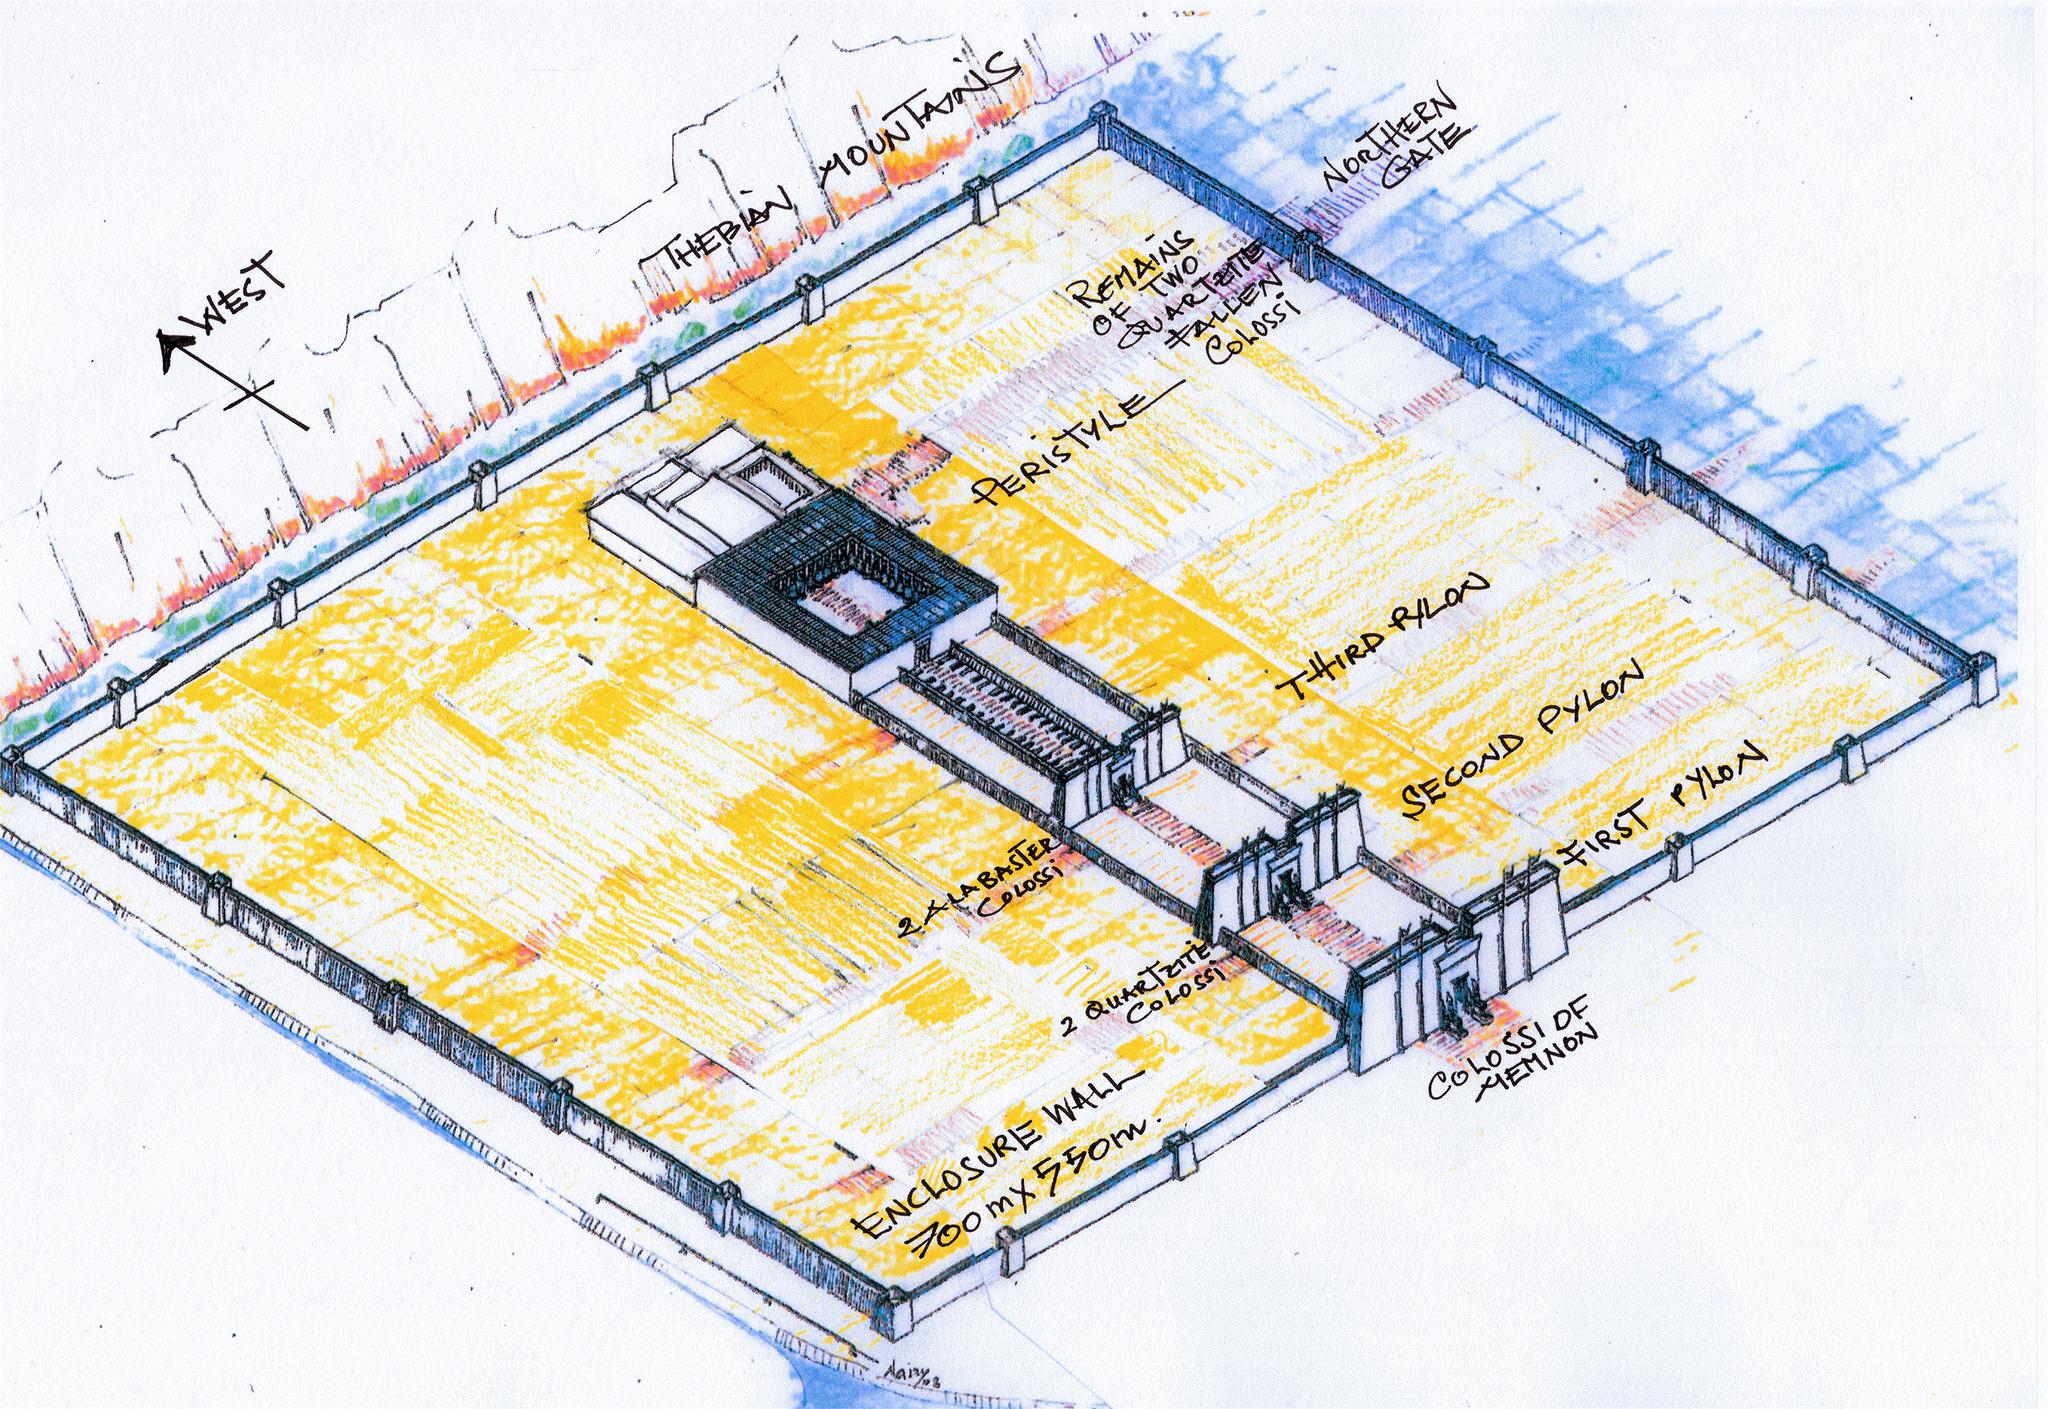 WEST
THEBIAN MOUNTAINS
NORTHERN
GATE
REMAINS
OF TWO
QUARTZITE
FALLEN
COLOSSI
PERISTYLE
THIRD PYLON
SECOND PYLON
FIRST PYLON
2 ALABASTER
COLOSSI
2 QUARTZITE
COLOSSI
COLOSSI OF
MEMNON
ENCLOSURE WALL
700m X 550m.